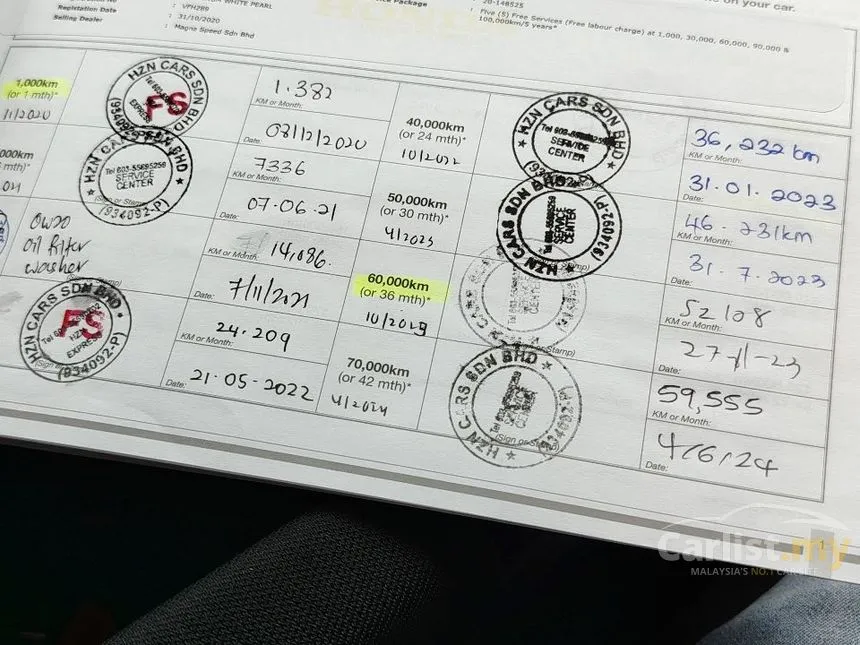 WHITE PEARL
Registation Date : VPH289
: 31/10/2020
Selling Dealer : Magna Speed Sdn Bhd
Package : 20-148525
: Five (5) Free Services (Free labour charge) at 1,000, 30,000, 60,000, 90,000 &
100,000km/5 years*
on your car.
HONDA
1,000km
(or 1 mth)*
11/2020
HZN CARS SDN BHD
FS
EXPRESS
1.382
KM or Month:
Date: 08/12/2020
HZN CARS SDN BHD
Tel 603-55695259
SERVICE
CENTER
(934092-P)
7336
KM or Month:
Date: 07.06.21
OW20
oil filter
washer
14,086.
KM or Month:
Date: 7/11/2021
HZN CARS SDN BHD
FS
EXPRESS
(934092-P)
24.209
KM or Month:
Date: 21.05.2022
40,000km
(or 24 mth)*
10/2022
HZN CARS SDN BHD
SERVICE
CENTER
36,232 km
KM or Month:
31.01.2023
Date:
50,000km
(or 30 mth)*
4/2023
HZN CARS SDN BHD
SERVICE
CENTER
(934092-P)
46.231km
KM or Month:
31.7.2023
Date:
60,000km
(or 36 mth)*
52108
KM or Month:
Date:
70,000km
(or 42 mth)*
4/2024
HZN CARS SDN BHD
(Sign or Stamp)
59,555
KM or Month:
4/6/24
Date:
1
Carlist.my
MALAYSIA'S NO.1 CAR SITE